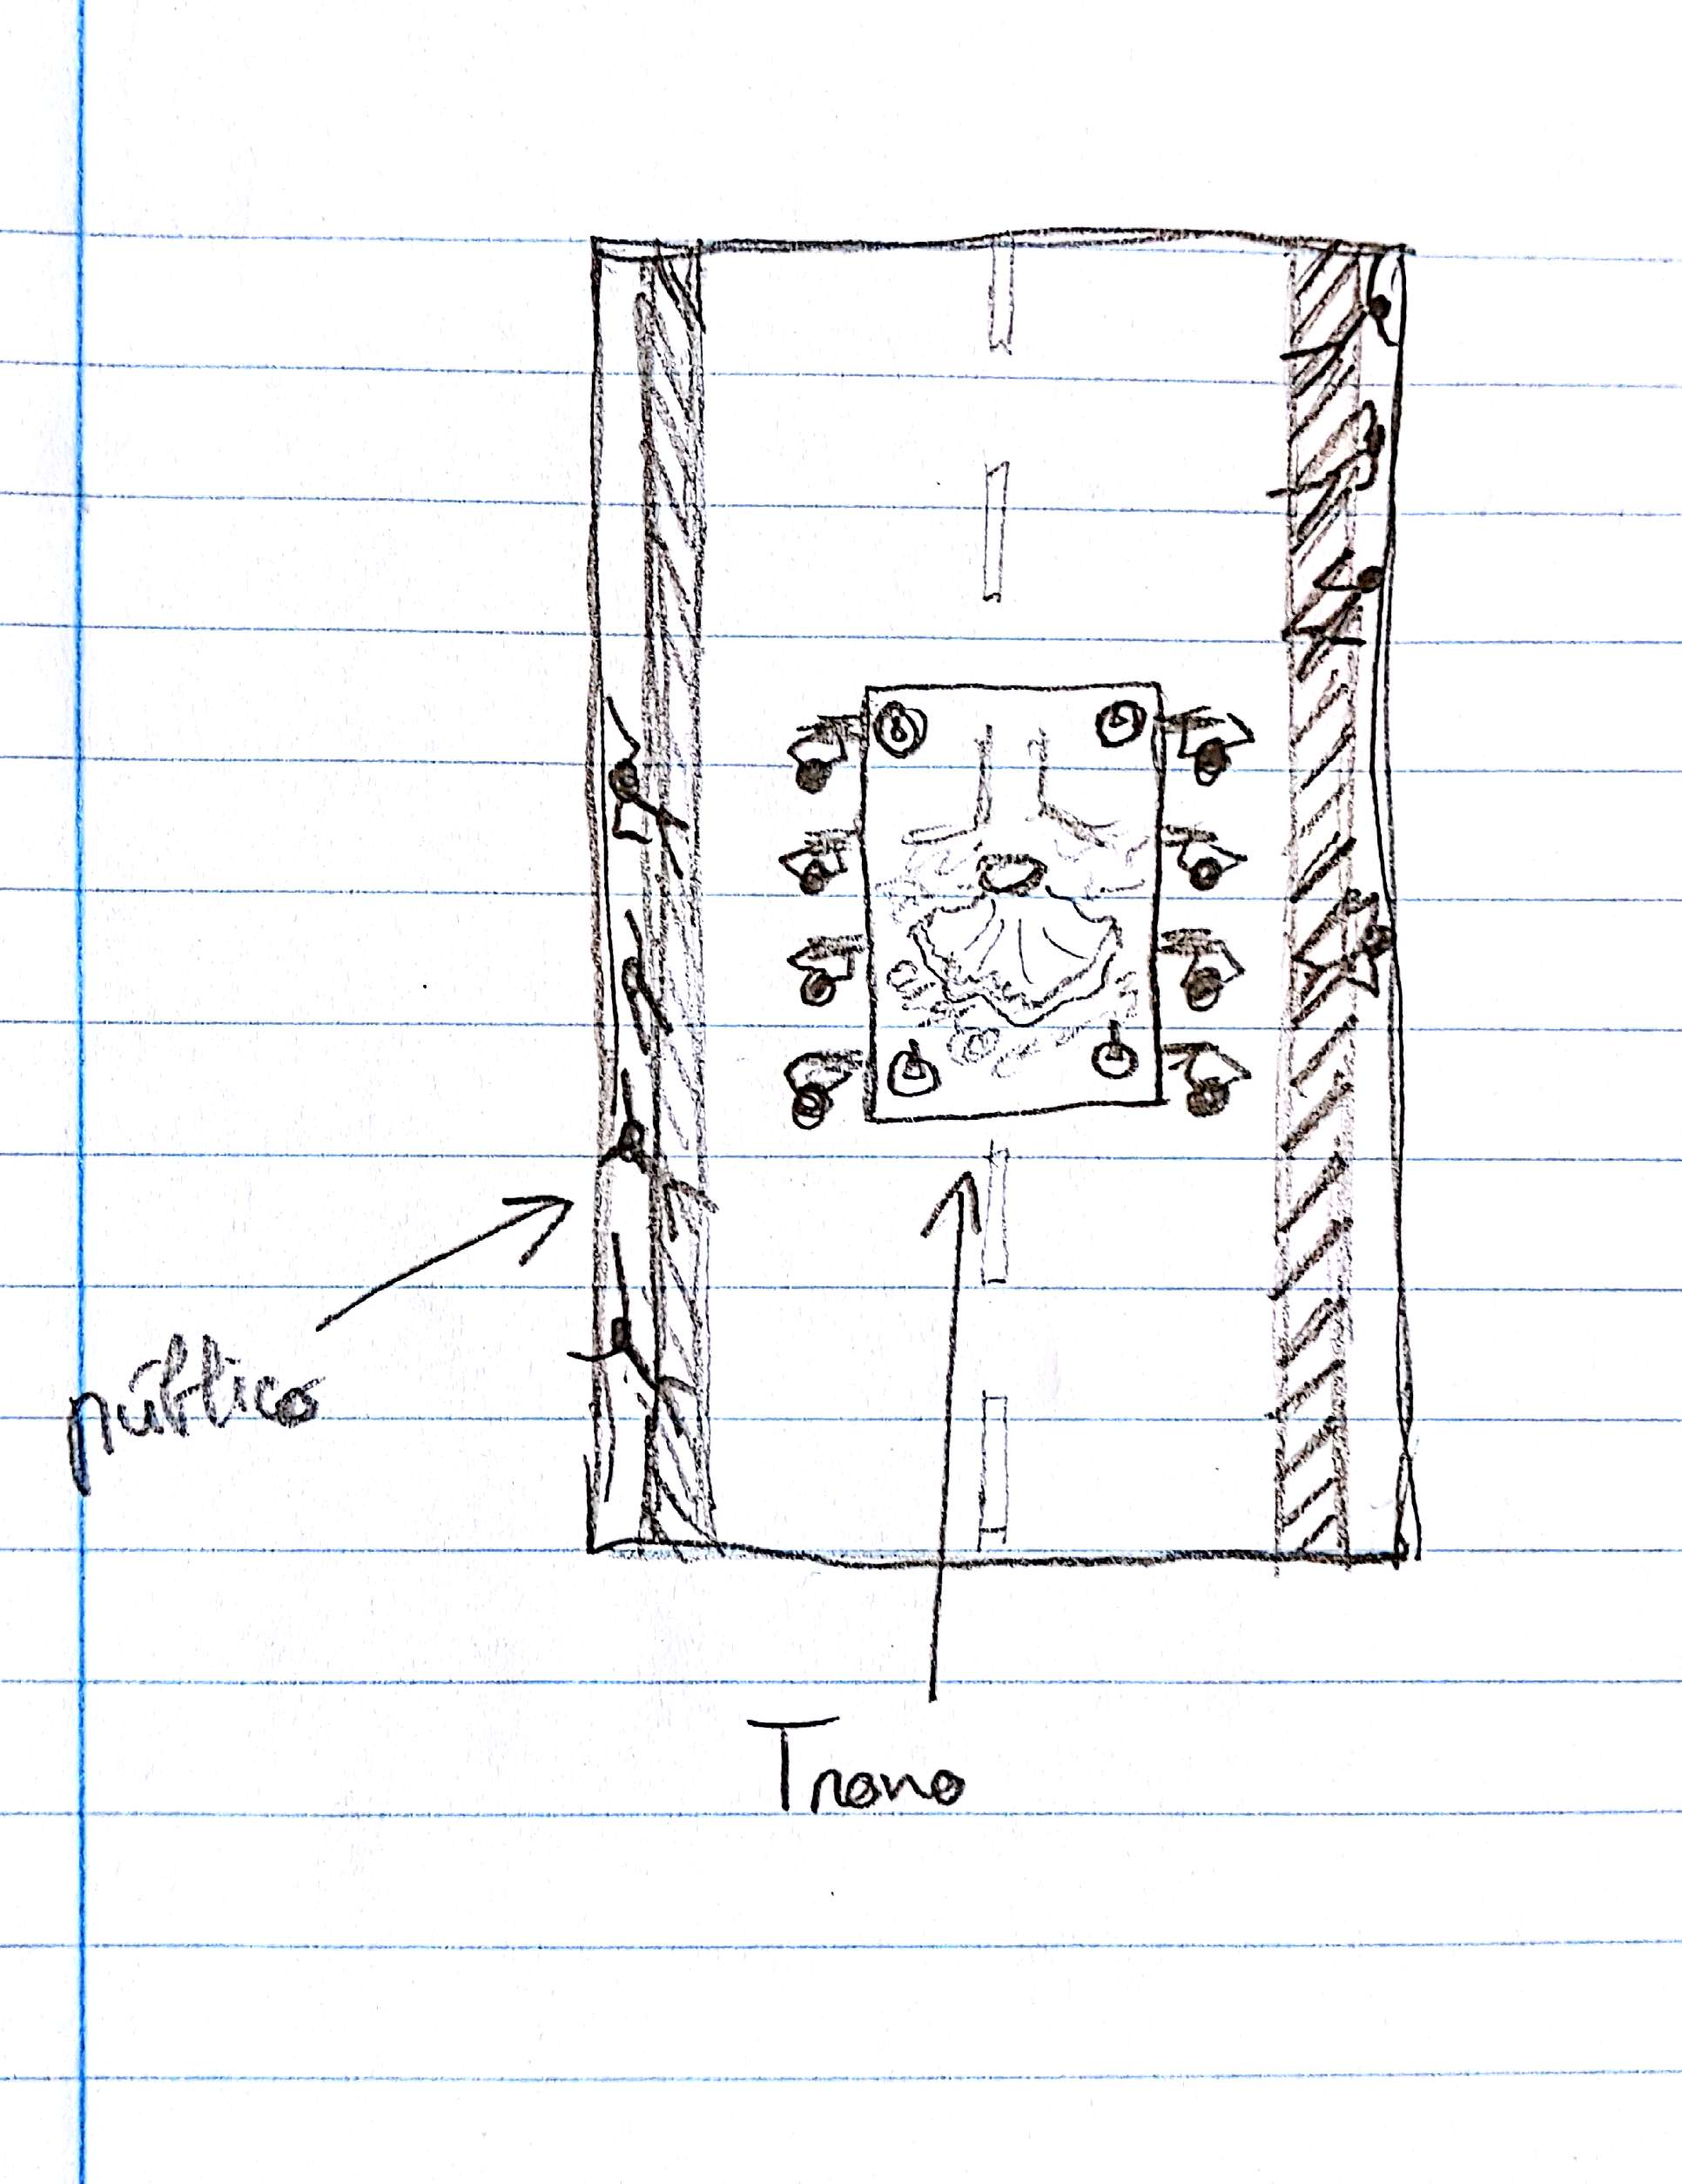 público
Trono